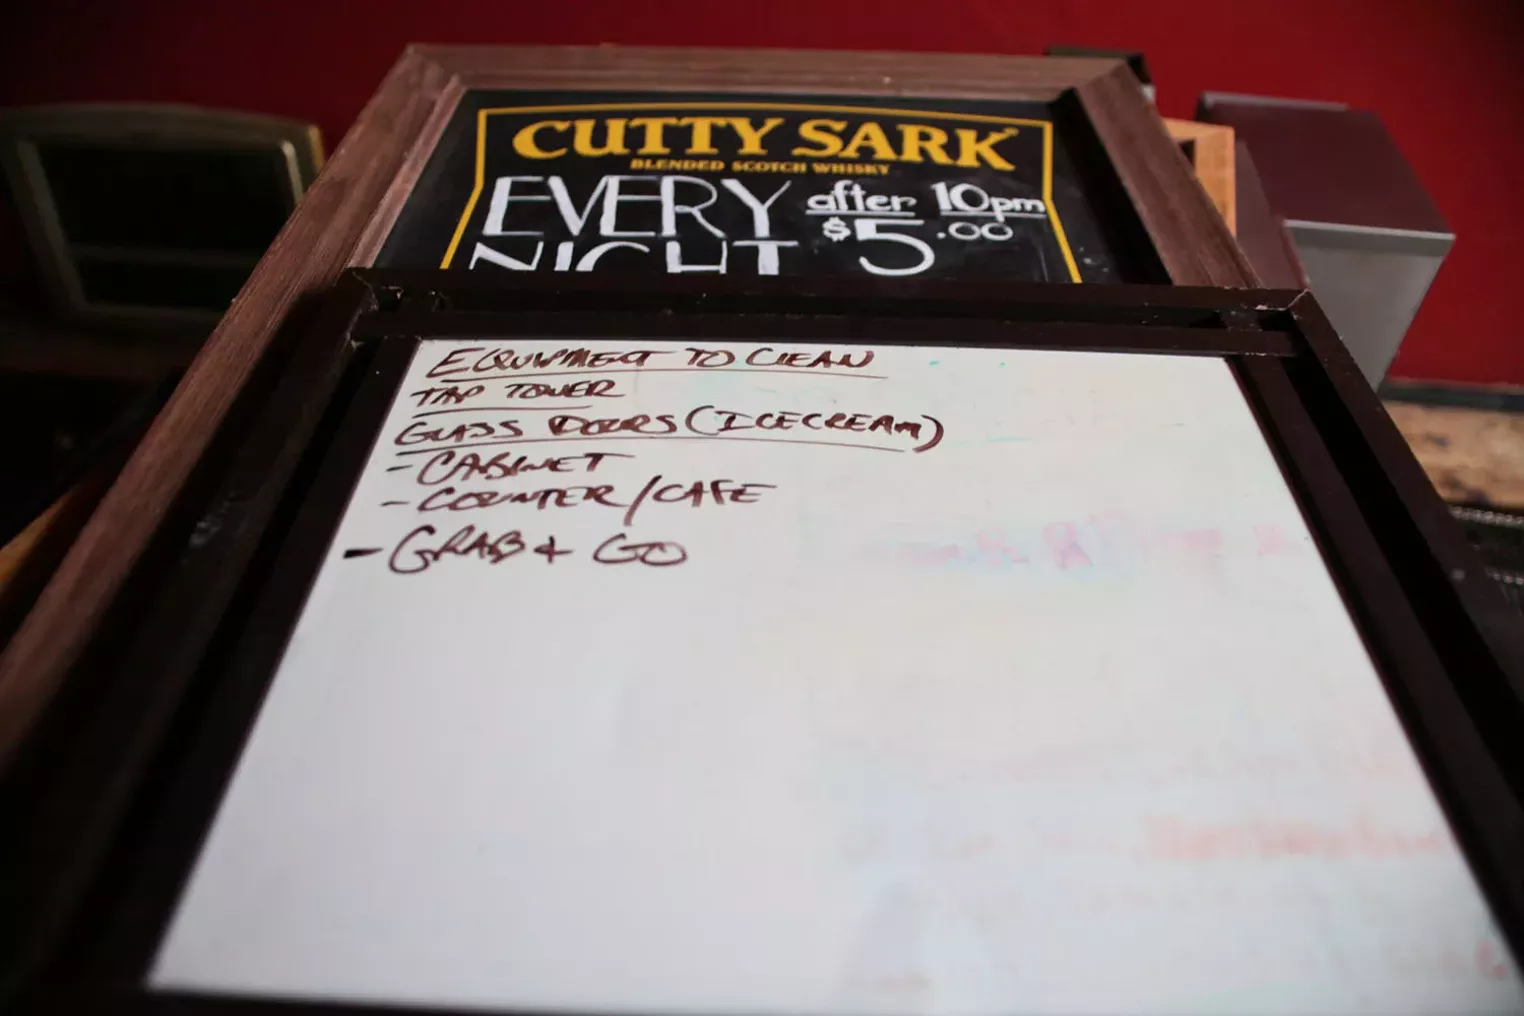 CUTTY SARK
BLENDED SCOTCH WHISKY
EVERY after 10pm
NIGHT $5.00
EQUIPMENT TO CLEAN
TAP TOWER
GLASS DOORS (ICECREAM)
- CABINET
- COUNTER/CAFE
- GRAB & GO